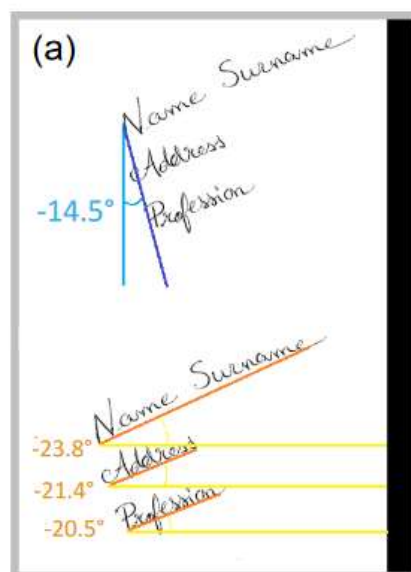 (a)
Name Surname
Address
Profession
-14.5°
Name Surname
-23.8°
Address
-21.4°
Profession
-20.5°